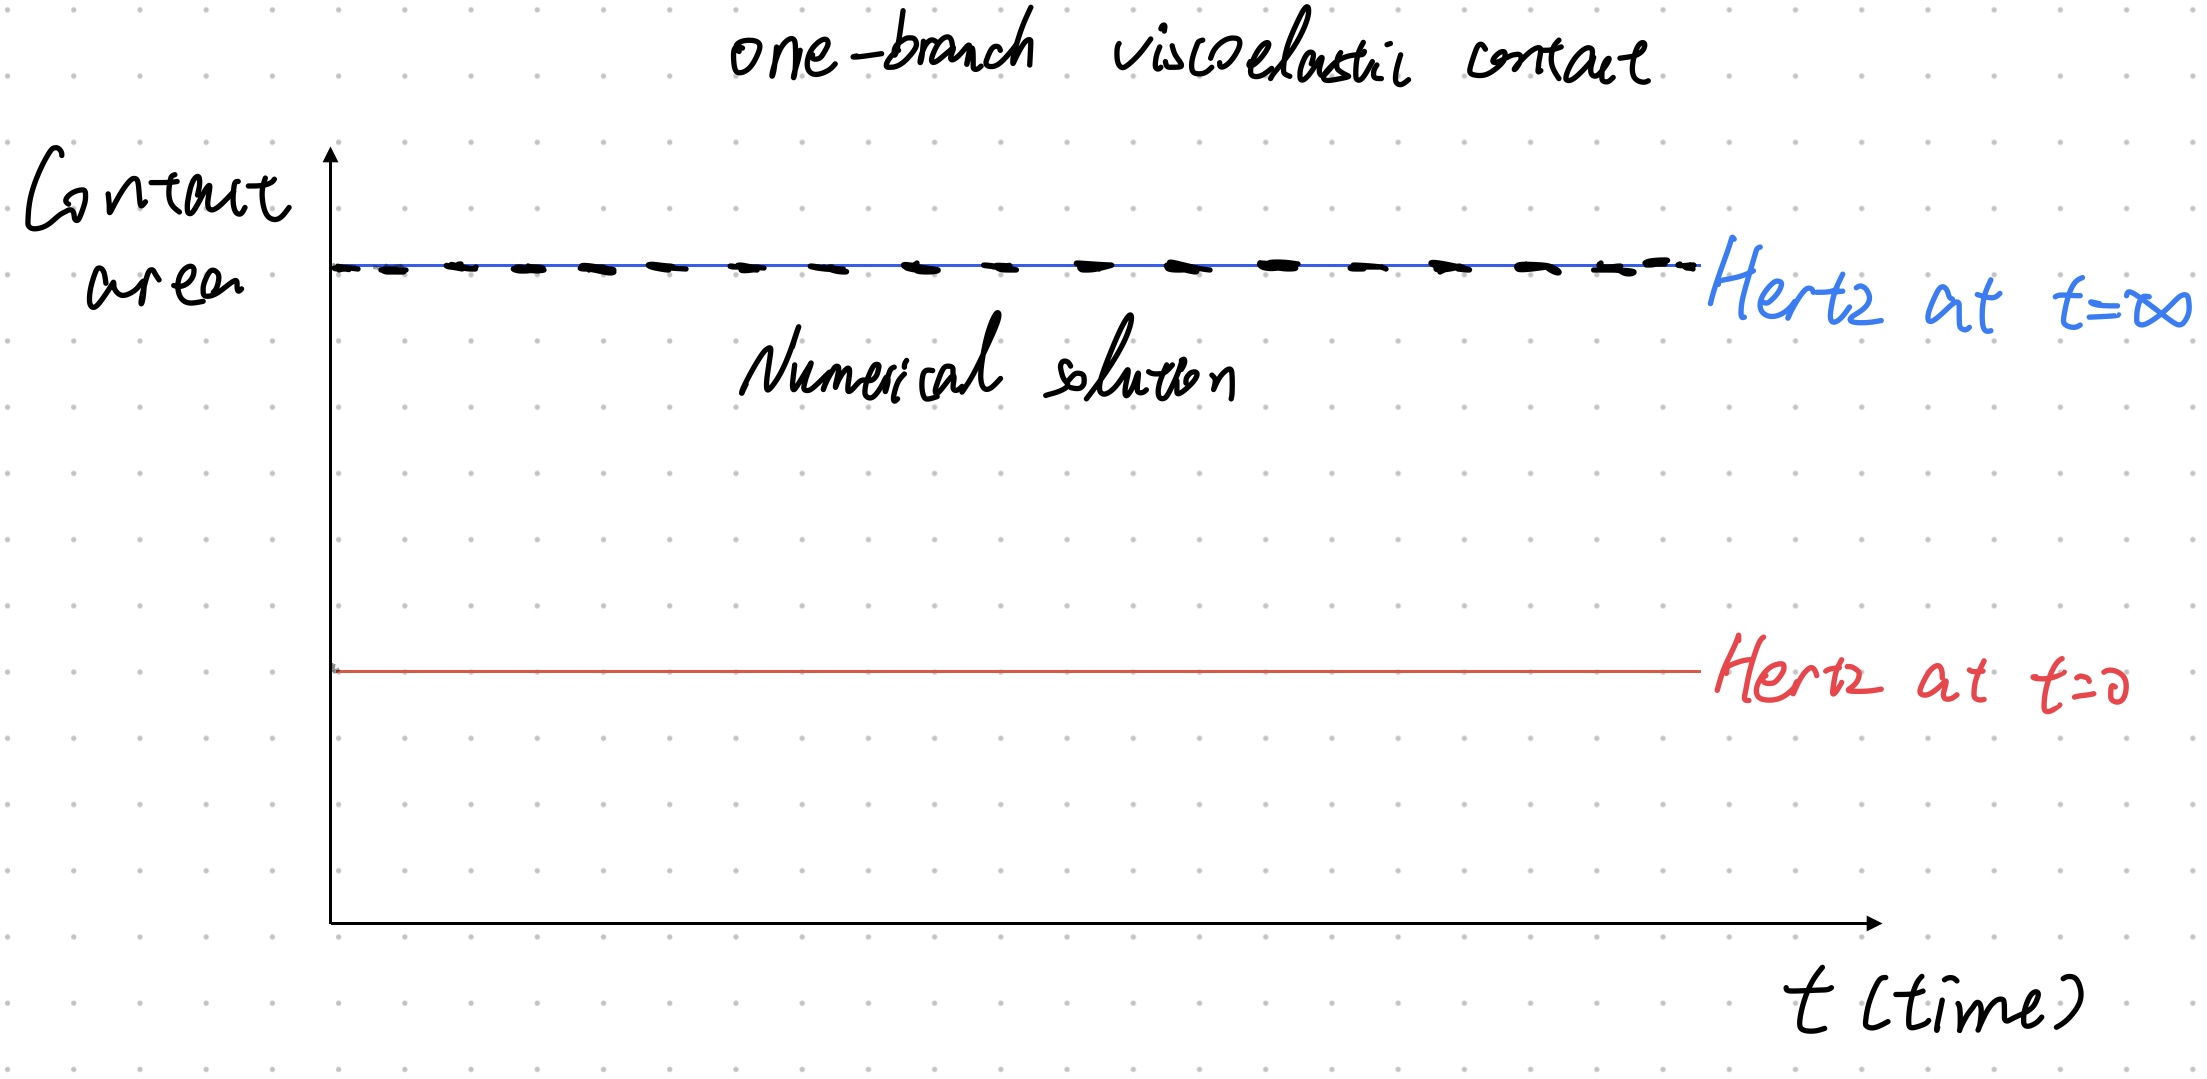 one-branch viscoelastic contact
Contact
area
Hertz at t=∞
Numerical solution
Hertz at t=0
t (time)